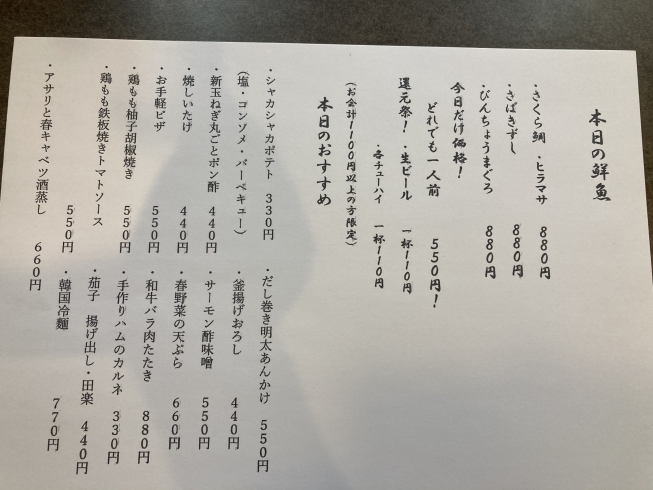 本日の鮮魚
・さくら鯛 ・ヒラマサ 880円
・さばきずし 880円
・びんちょうまぐろ 880円
今日だけ価格!
どれでも一人前 550円!
還元祭!・生ビール 一杯110円
・各チューハイ 一杯110円
(お会計1100円以上の方限定)
本日のおすすめ
・シャカシャカポテト 330円
(塩・コンソメ・バーベキュー)
・新玉ねぎ丸ごとポン酢 440円
・焼しいたけ 440円
・お手軽ピザ 550円
・鶏もも柚子胡椒焼き 550円
・鶏もも鉄板焼きトマトソース 550円
・アサリと春キャベツ酒蒸し 660円
・だし巻き明太あんかけ 550円
・釜揚げおろし 440円
・サーモン酢味噌 550円
・春野菜の天ぷら 660円
・和牛バラ肉たたき 880円
・手作りハムのカルネ 330円
・茄子 揚げ出し・田楽 440円
・韓国冷麺 770円